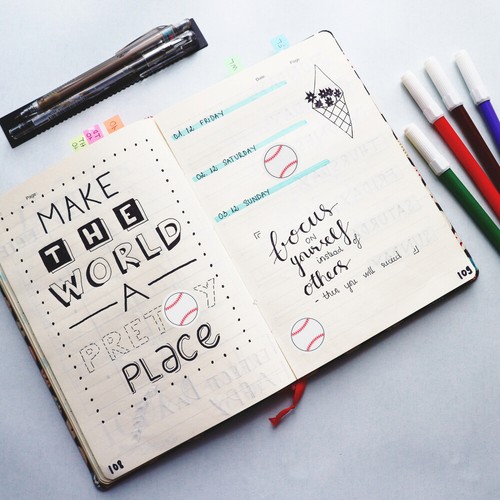 Page:
MAKE
THE
WORLD
A
PRET Y
PLACE
108
Date:
Page:
01.12 FRIDAY
02.12 SATURDAY
03.12 SUNDAY
focus
on
yourself
instead of
others
- then you will succeed
109